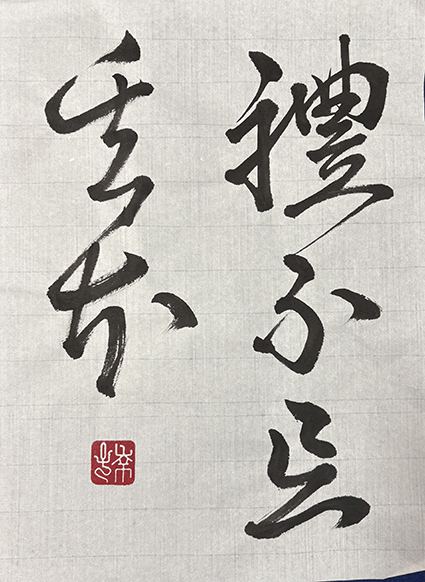 禮不忘
其本